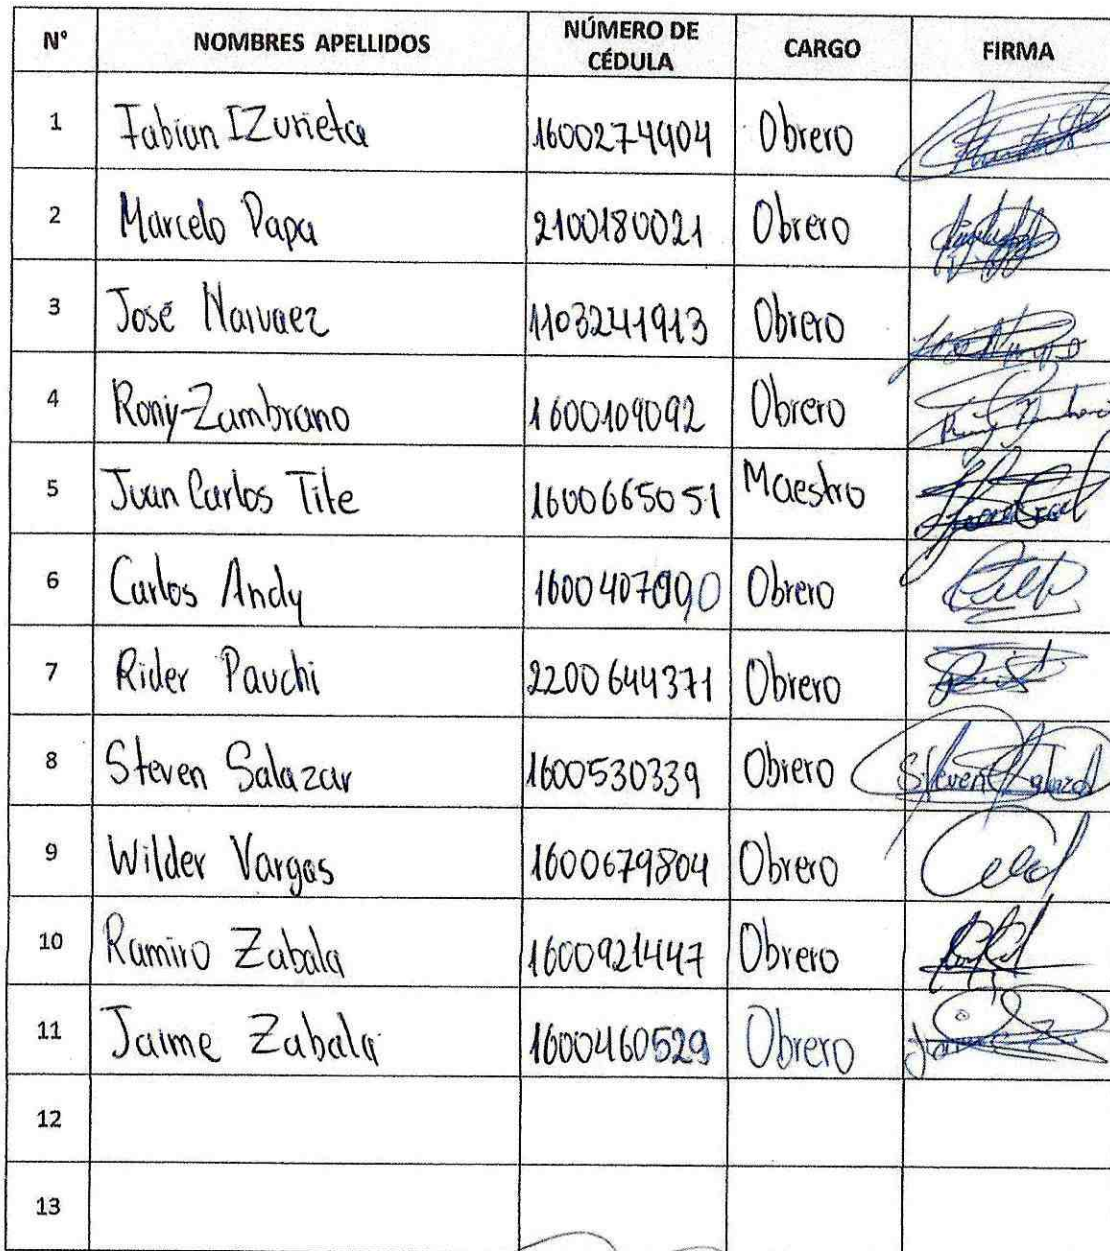 N° NOMBRES APELLIDOS NÚMERO DE CÉDULA CARGO FIRMA
1 Fabian IZurieta 1600274904 Obrero
2 Marcelo Papa 2100180021 Obrero
3 José Narvaez 1103241913 Obrero
4 Rony Zambrano 1600109092 Obrero
5 Juan Carlos Tite 1600665051 Maestro
6 Carlos Andy 1600407090 Obrero
7 Rider Pauchi 2200644371 Obrero
8 Steven Salazar 1600530339 Obrero Steven Salazar
9 Wilder Vargas 1600679804 Obrero
10 Ramiro Zabala 1600921447 Obrero
11 Jaime Zabala 1600460529 Obrero
12
13